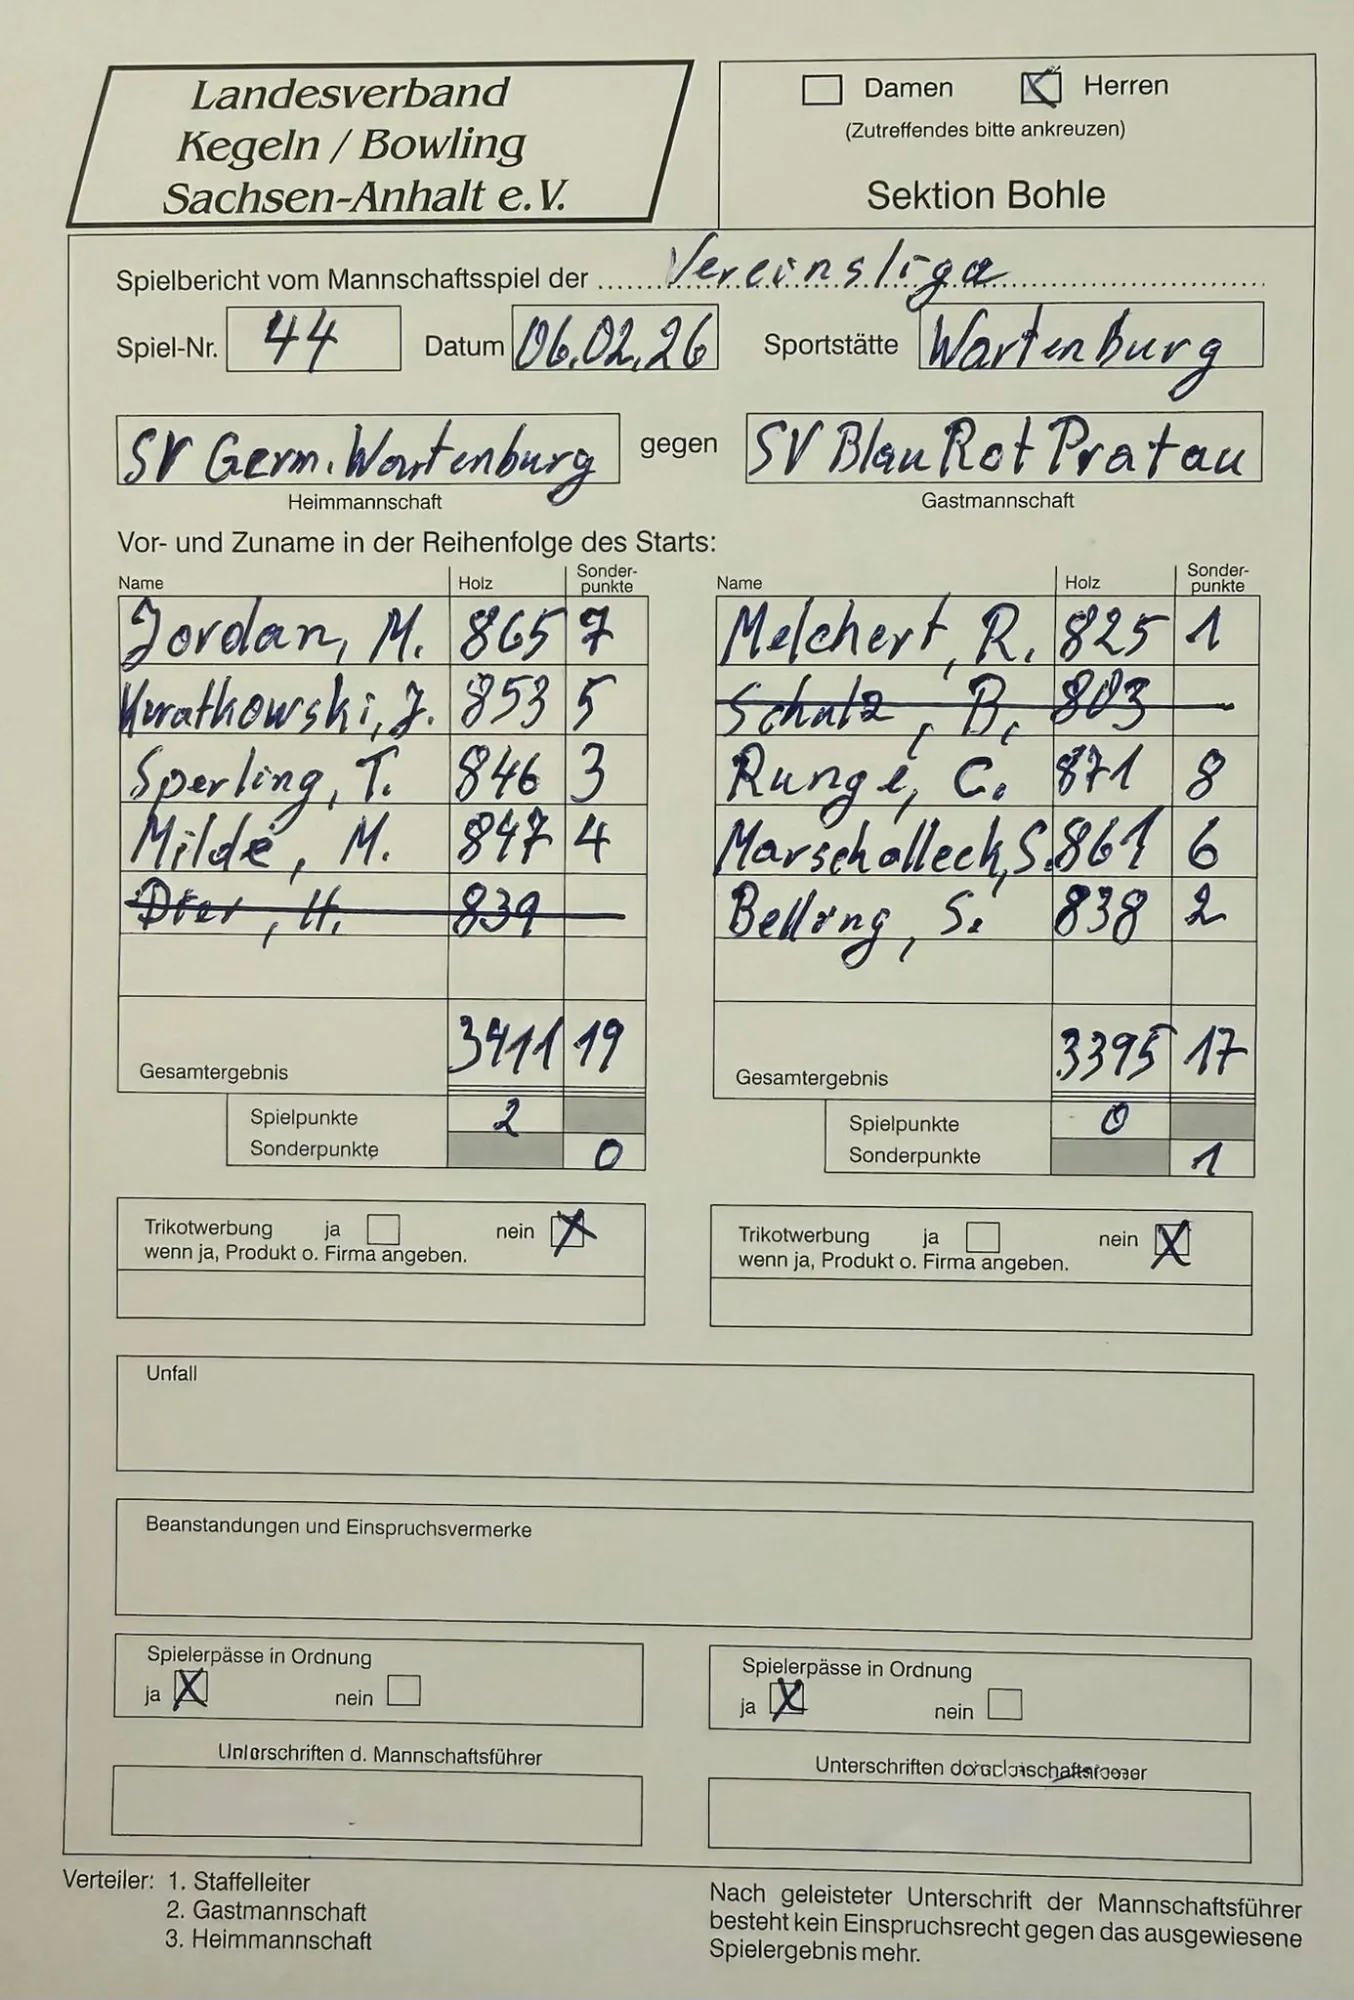 Landesverband
Kegeln / Bowling
Sachsen-Anhalt e.V.
Damen Herren
(Zutreffendes bitte ankreuzen)
Sektion Bohle
Spielbericht vom Mannschaftsspiel der Vereinsliga
Spiel-Nr. 44 Datum 06.02.26 Sportstätte Wartenburg
SV Germ. Wartenburg gegen SV Blau Rot Pratau
Heimmannschaft Gastmannschaft
Vor- und Zuname in der Reihenfolge des Starts:
Name Holz Sonder-punkte Name Holz Sonder-punkte
Jordan, M. 865 7 Melchert, R. 825 1
Kwatkowski, J. 853 5 Schulz, B. 803
Sperling, T. 846 3 Runge, C. 871 8
Milde, M. 847 4 Marschalleck, S. 861 6
H. 839 Belling, S. 838 2
Gesamtergebnis 3411 19 Gesamtergebnis 3395 17
Spielpunkte 2 Spielpunkte 0
Sonderpunkte 0 Sonderpunkte 1
Trikotwerbung ja nein Trikotwerbung ja nein
wenn ja, Produkt o. Firma angeben. wenn ja, Produkt o. Firma angeben.
Unfall
Beanstandungen und Einspruchsvermerke
Spielerpässe in Ordnung Spielerpässe in Ordnung
ja nein ja nein
Unterschriften d. Mannschaftsführer Unterschriften
Verteiler: 1. Staffelleiter
2. Gastmannschaft
3. Heimmannschaft
Nach geleisteter Unterschrift der Mannschaftsführer
besteht kein Einspruchsrecht gegen das ausgewiesene
Spielergebnis mehr.